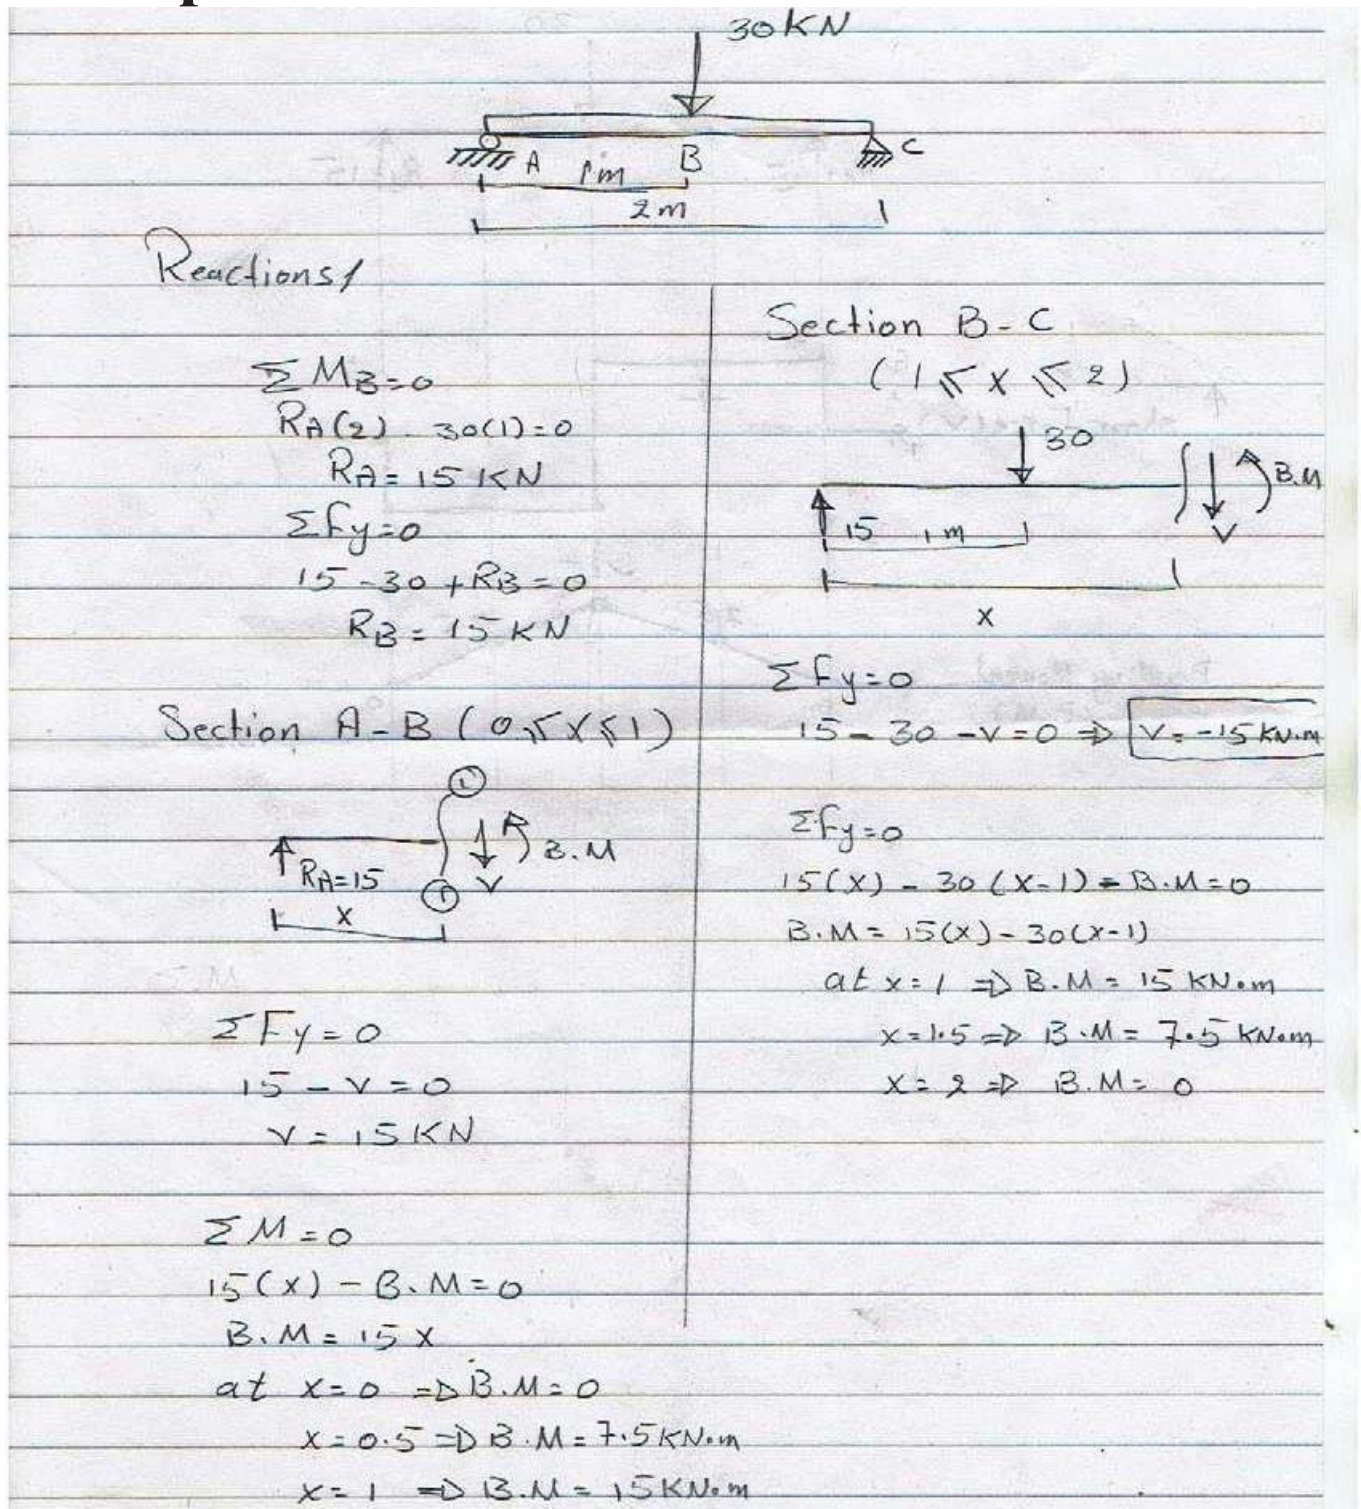 30KN
A
B
C
1m
2m
Reactions/
ΣMB=0
RA(2) - 30(1)=0
RA=15 KN
Σfy=0
15-30+RB=0
RB=15 KN
Section A-B (0≤x≤1)
1
RA=15
V
B.M
1
x
ΣFy=0
15-V=0
V=15KN
ΣM=0
15(x)-B.M=0
B.M=15x
at x=0 ⇒ B.M=0
x=0.5 ⇒ B.M=7.5KN.m
x=1 ⇒ B.M=15KN.m
Section B-C
(1≤x≤2)
30
B.M
15
1m
V
x
Σfy=0
15-30-V=0 ⇒ V=-15KN.m
Σfy=0
15(x)-30(x-1)-B.M=0
B.M=15(x)-30(x-1)
at x=1 ⇒ B.M=15 KN.m
x=1.5 ⇒ B.M=7.5 KN.m
x=2 ⇒ B.M=0